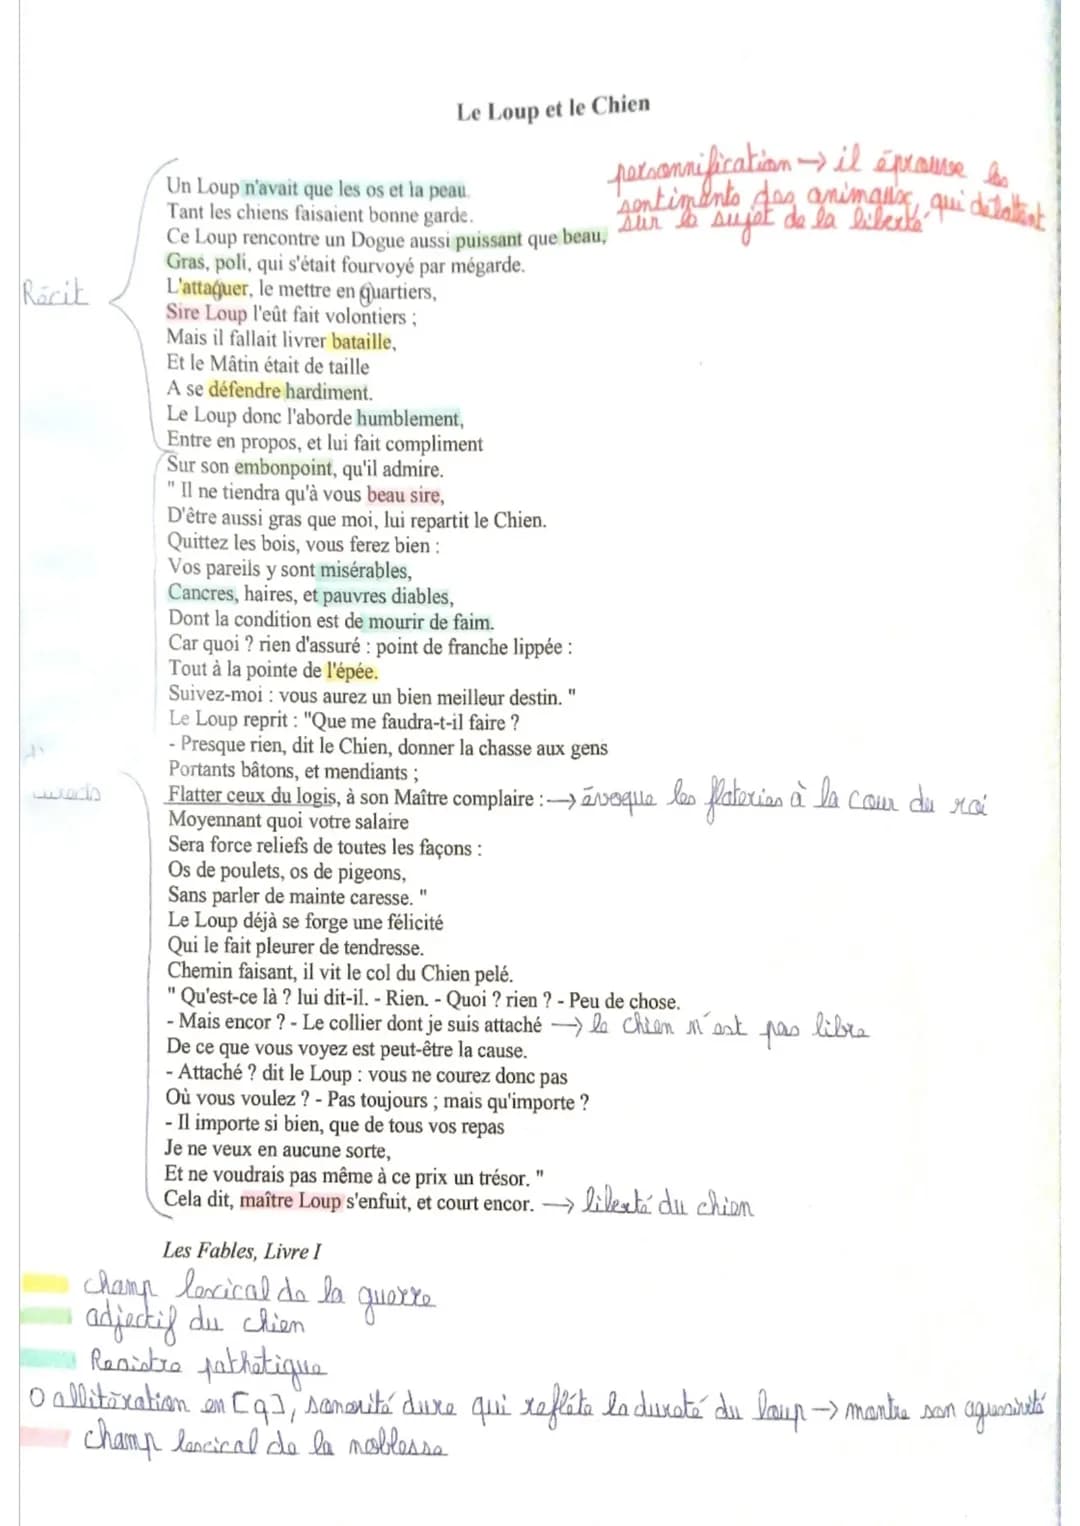 Le Loup et le Chien
personnification → il éprouve les
sentiments des animaux, qui débattent
sur le sujet de la liberté
Un Loup n'avait que les os et la peau.
Tant les chiens faisaient bonne garde.
Ce Loup rencontre un Dogue aussi puissant que beau,
Gras, poli, qui s'était fourvoyé par mégarde.
L'attaquer, le mettre en quartiers,
Récit
Sire Loup l'eût fait volontiers ;
Mais il fallait livrer bataille,
Et le Mâtin était de taille
A se défendre hardiment.
Le Loup donc l'aborde humblement,
Entre en propos, et lui fait compliment
Sur son embonpoint, qu'il admire.
" Il ne tiendra qu'à vous beau sire,
D'être aussi gras que moi, lui repartit le Chien.
Quittez les bois, vous ferez bien :
Vos pareils y sont misérables,
Cancres, haires, et pauvres diables,
Dont la condition est de mourir de faim.
Car quoi ? rien d'assuré : point de franche lippée :
Tout à la pointe de l'épée.
Suivez-moi : vous aurez un bien meilleur destin. "
Le Loup reprit : "Que me faudra-t-il faire ?
- Presque rien, dit le Chien, donner la chasse aux gens
Portants bâtons, et mendiants ;
Flatter ceux du logis, à son Maître complaire : → évoque les flateries à la cour du roi
Moyennant quoi votre salaire
Sera force reliefs de toutes les façons :
Os de poulets, os de pigeons,
Sans parler de mainte caresse. "
Le Loup déjà se forge une félicité
Qui le fait pleurer de tendresse.
Chemin faisant, il vit le col du Chien pelé.
" Qu'est-ce là ? lui dit-il. - Rien. - Quoi ? rien ? - Peu de chose.
- Mais encor ? - Le collier dont je suis attaché → le chien n'est pas libre
De ce que vous voyez est peut-être la cause.
- Attaché ? dit le Loup : vous ne courez donc pas
Où vous voulez ? - Pas toujours ; mais qu'importe ?
- Il importe si bien, que de tous vos repas
Je ne veux en aucune sorte,
Et ne voudrais pas même à ce prix un trésor. "
Cela dit, maître Loup s'enfuit, et court encor. → liberté du chien
Les Fables, Livre I
champ lexical de la guerre
adjectif du chien
Registre pathétique
O allitération en [q], sonorité dure qui reflète la dureté du loup → montre son agressivité
champ lexical de la noblesse